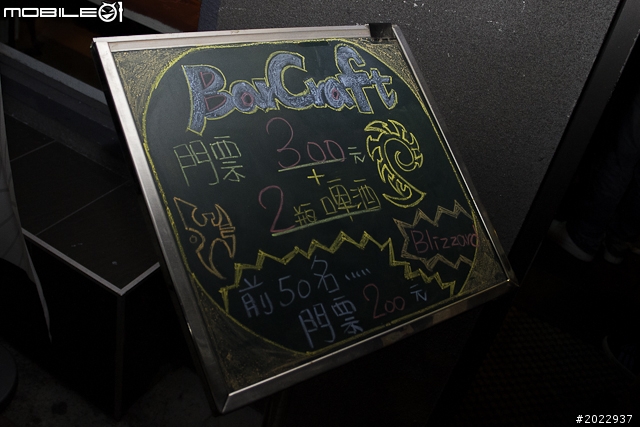 MOBILE01
BarCraft
門票 300元
+
2瓶啤酒
Blizzard
前50名.....
門票200元
#2022937